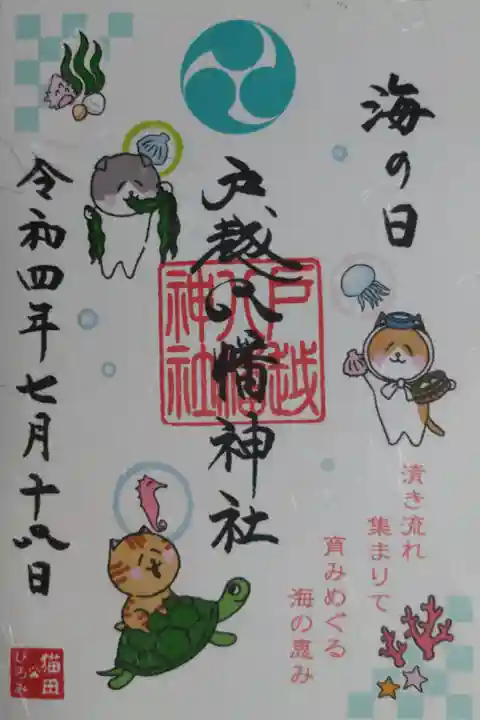 海の日
戸越八幡神社
戸越
八幡
神社
令和四年七月十八日
清き流れ
集まりて
育みめぐる
海の恵み
猫田
びろみ